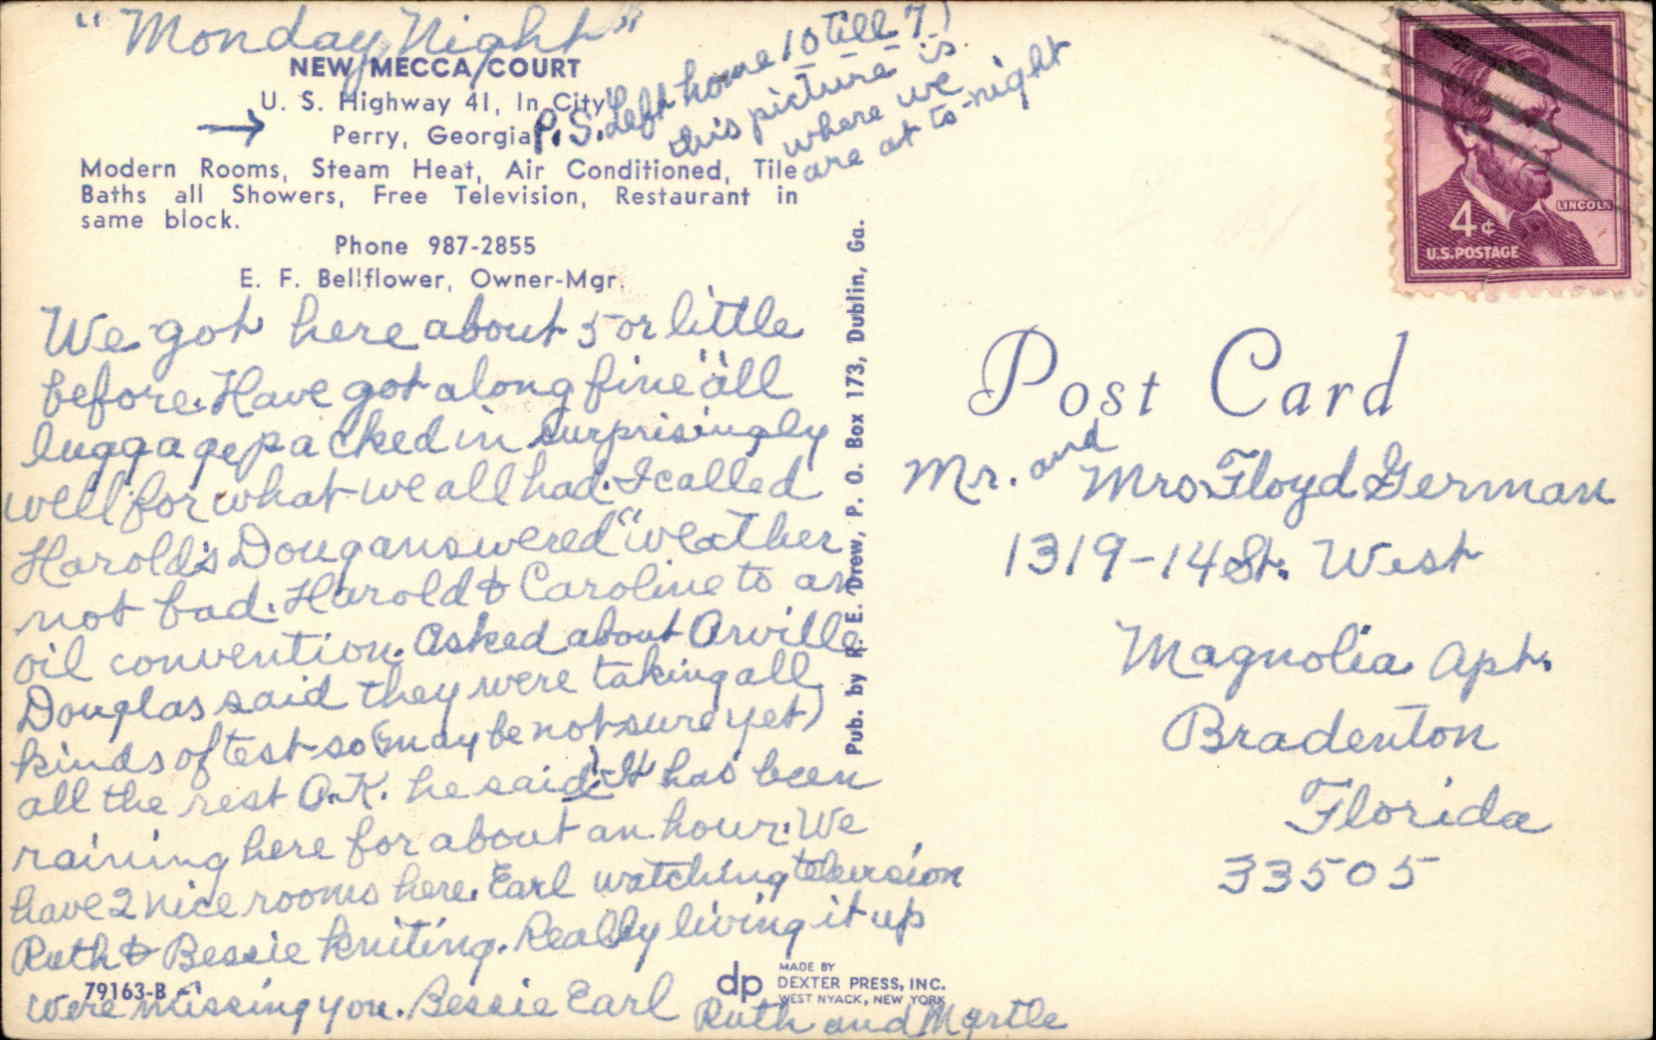 "Monday Night"
NEW MECCA COURT
U. S. Highway 41, In City
Perry, Georgia
Modern Rooms, Steam Heat, Air Conditioned, Tile
Baths all Showers, Free Television, Restaurant in
same block.
Phone 987-2855
E. F. Bellflower, Owner-Mgr.
P.S. Left home 10 till 7)
this picture is
where we
are at to-night
We got here about 5 or little
before. Have got along fine "all
luggage packed in surprisingly
well for what we all had. I called
Harold's Doug answered "weather
not bad. Harold & Caroline to an
oil convention. Asked about Orville
Douglas said they were taking all
kinds of test so (may be not sure yet)
all the rest O.K. he said. It has been
raining here for about an hour. We
have 2 nice rooms here. Earl watching television
Ruth & Bessie kniting. Really living it up
were missing you. Bessie Earl
Ruth and Myrtle
79163-B
Pub. by R. E. Drew, P. O. Box 173, Dublin, Ga.
dp
MADE BY
DEXTER PRESS, INC.
WEST NYACK, NEW YORK
LINCOLN
4¢
U.S. POSTAGE
Post Card
Mr. and Mrs Floyd German
1319-14 St. West
Magnolia Apt.
Bradenton
Florida
33505